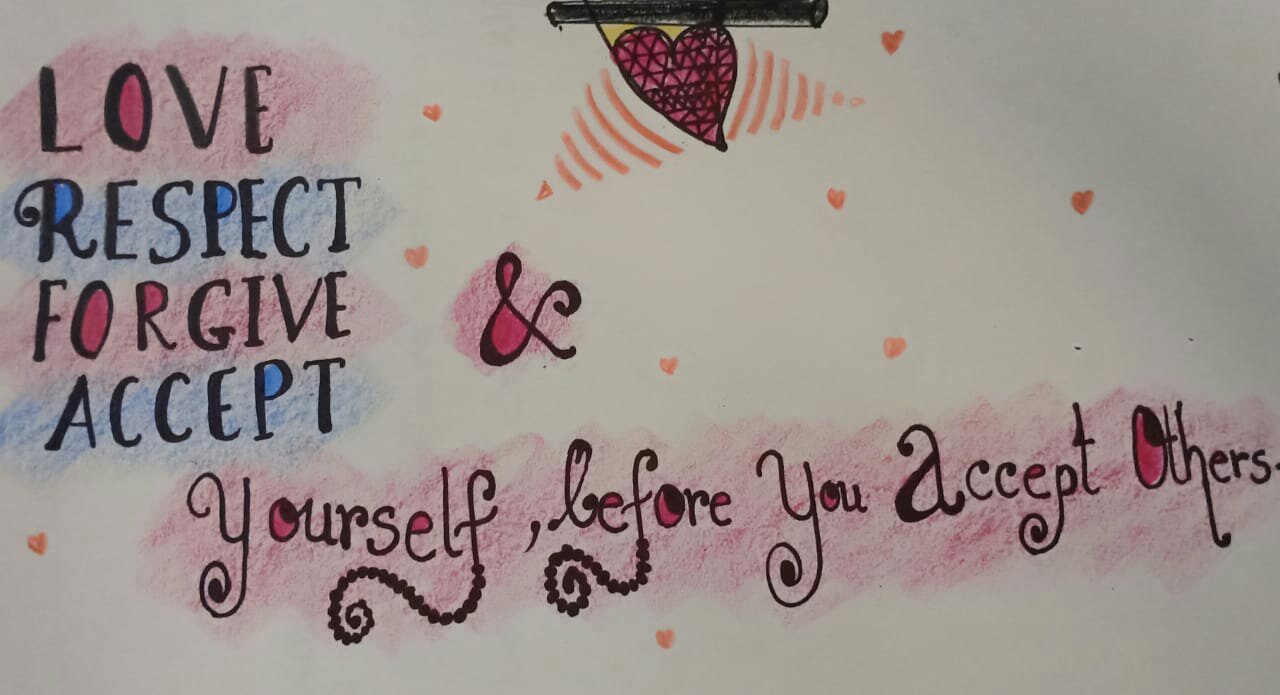 LOVE
RESPECT
FORGIVE
&
ACCEPT
Yourself, before You Accept Others.